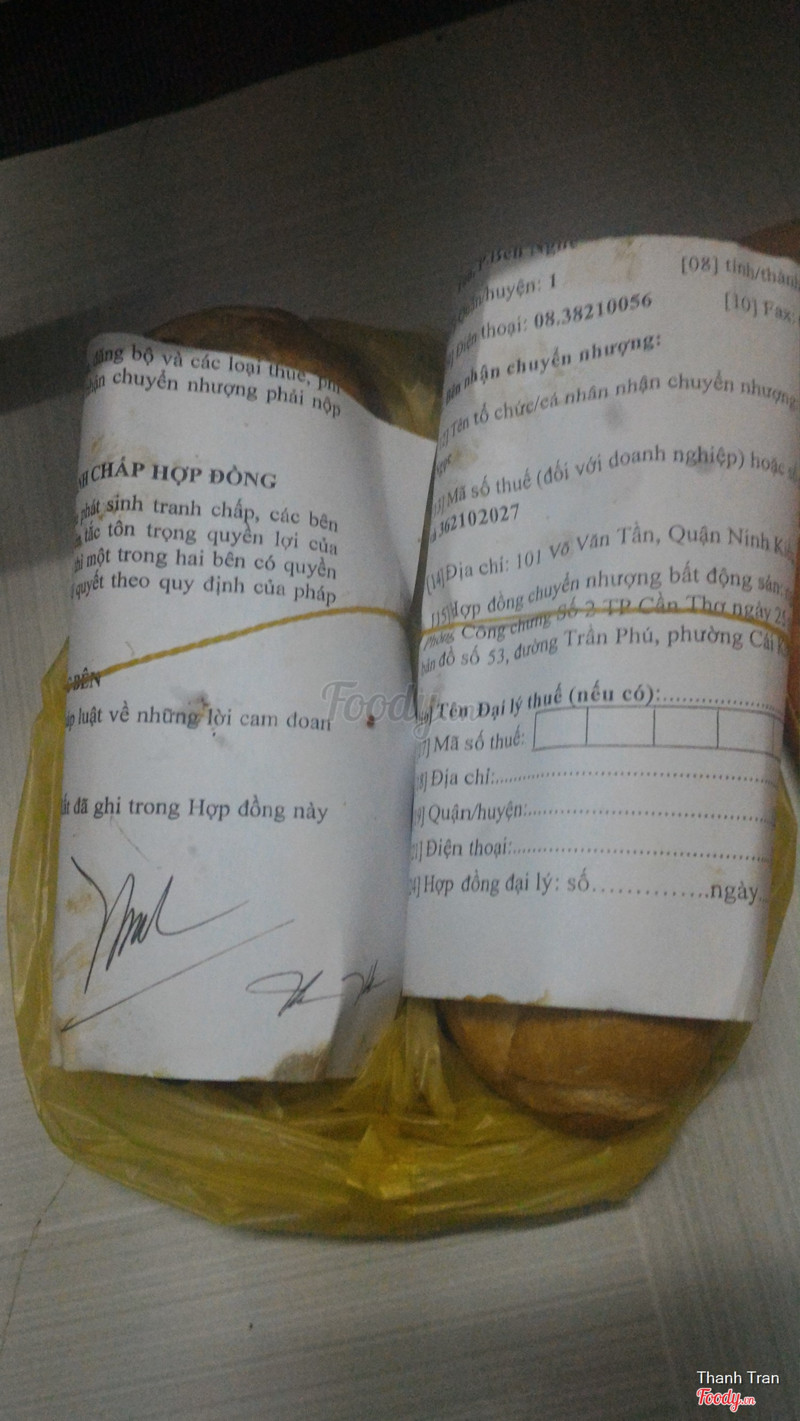 bộ và các loại thuế, phí
chuyển nhượng phải nộp
CHẤP HỢP ĐỒNG
phát sinh tranh chấp, các bên
tắc tôn trọng quyền lợi của
một trong hai bên có quyền
quyết theo quy định của pháp
BÊN
luật về những lời cam đoan
đã ghi trong Hợp đồng này
P.Bến Nghé
huyện: 1
[08] tỉnh/thành
thoại: 08.38210056
[10] Fax:
nhận chuyển nhượng:
Tên tổ chức/cá nhân nhận chuyển nhượng
Mã số thuế (đối với doanh nghiệp) hoặc
362102027
[14]Địa chỉ: 101 Võ Văn Tần, Quận Ninh
[15]Hợp đồng chuyển nhượng bất động sản:
Phòng Công chứng Số 2 TP Cần Thơ ngày
bản đồ số 53, đường Trần Phú, phường Cái
Tên Đại lý thuế (nếu có):..................
Mã số thuế:
Địa chỉ:..................
Quận/huyện:..................
Điện thoại:..................
Hợp đồng đại lý: số..................ngày
Foody.vn
Thanh Tran
Foody.vn